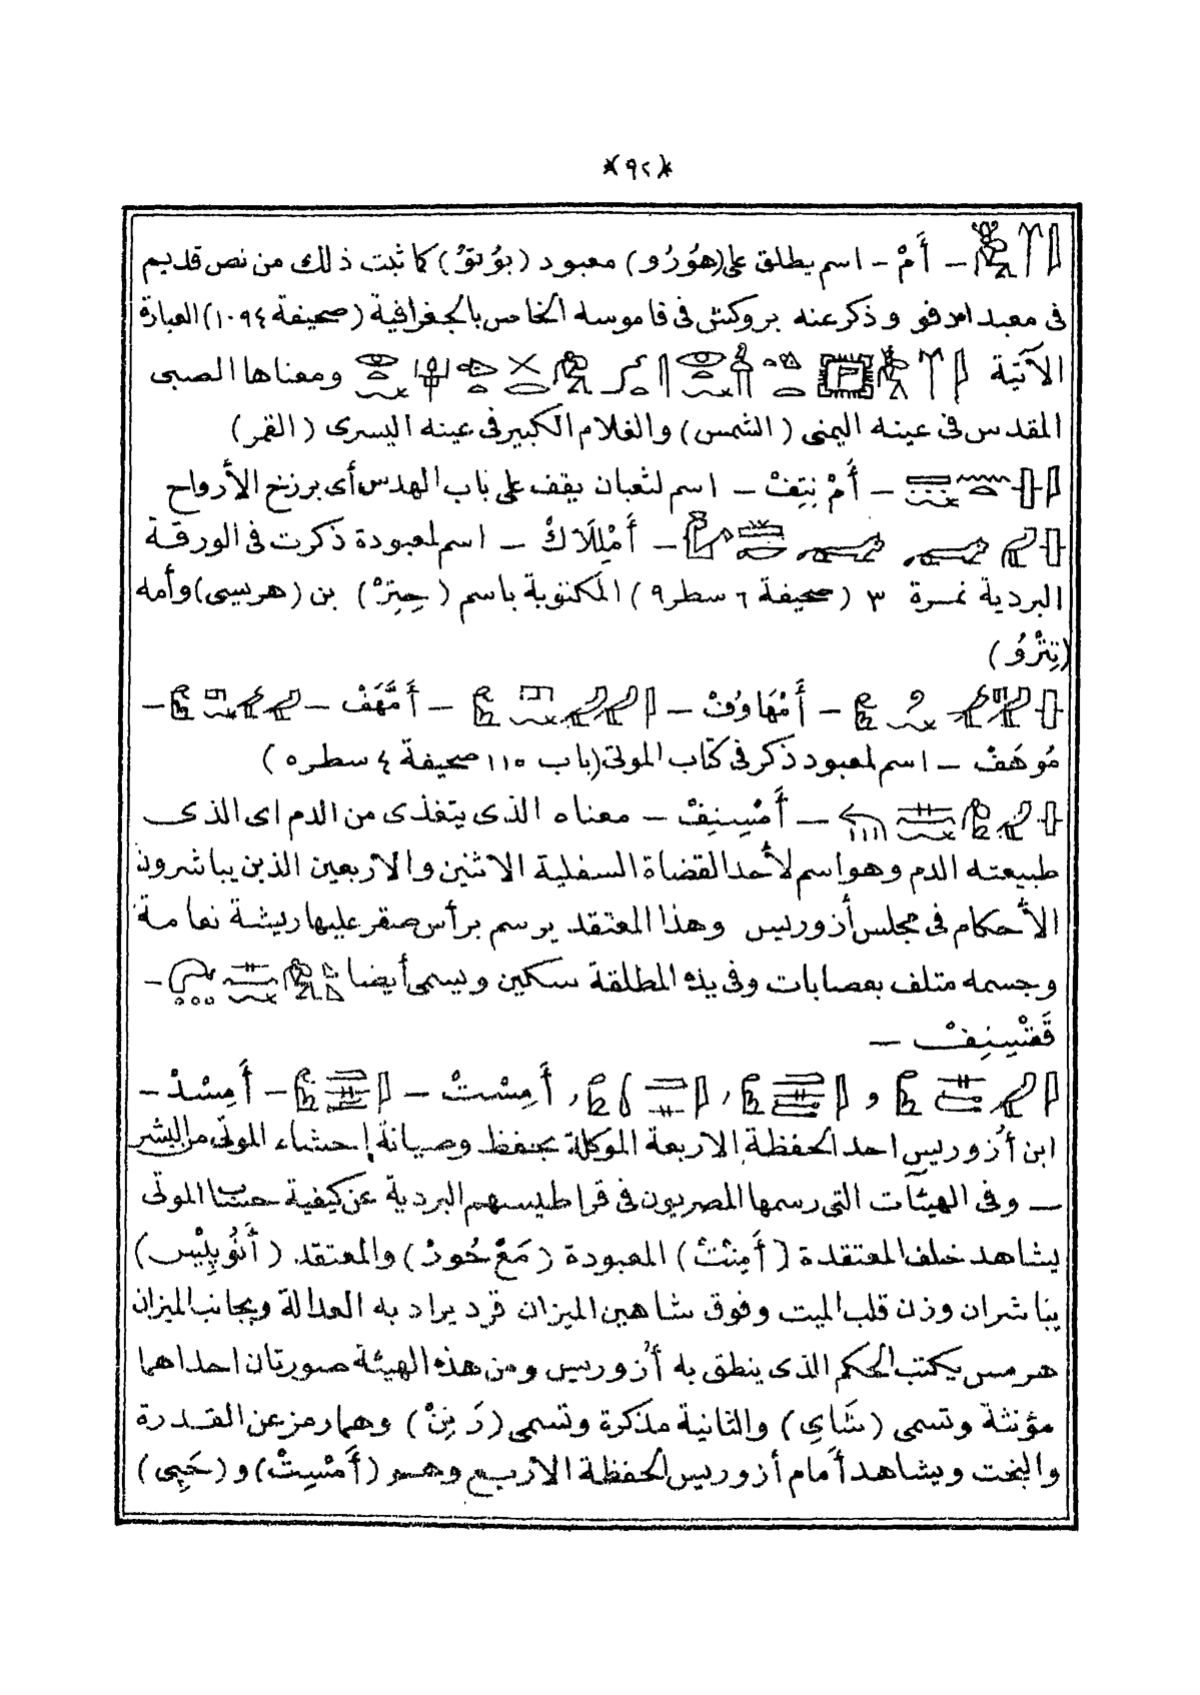 (٩٢)
— أَمْ — اسم يطلق على (هُورُو) معبود (بُوتُو) كما ثبت ذلك من نص قديم
فى معبد ادفو وذكر عنه بروكش فى قاموسه الخاص بالجغرافية (صحيفة ١٠٩٤) العبارة
الآتية ومعناها الصبى
المقدس فى عينه اليمنى (الشمس) والغلام الكبير فى عينه اليسرى (القمر)
— أَمْ نِتِفْ — اسم لثعبان يقف على باب الهدس أى برزخ الأرواح
— أَمْلِلَاكْ — اسم لمعبودة ذكرت فى الورقة
البردية نمرة ٣ (صحيفة ٦ سطر ٩) المكتوبة باسم (حِتِرْ) بن (هريسى) وأمه
(تِتْرُو)
— أَمْهَاوُفْ — — أَمَّهَفْ — —
مُوهَفْ — اسم لمعبود ذكر فى كتاب الموتى (باب ١١٥ صحيفة ٤ سطر ٥)
— أَمْسِنِفْ — معناه الذى يتغذى من الدم اى الذى
طبيعته الدم وهو اسم لأحد القضاة السفلية الاثنين والاربعين الذين يباشرون
الأحكام فى مجلس أزوريس وهذا المعتقد يرسم برأس صقر عليها ريشة نعامة
وجسمه متلف بعصابات وفى يده المطلقة سكين ويسمى أيضا —
—
و , , أَمِسْتْ — — أَمِسْدْ —
ابن أزوريس احد الحفظة الاربعة الموكلة بحفظ وصيانة إحشاء الموتى من البشر
— وفى الهيئآت التى رسمها المصريون فى قراطيسهم البردية عن كيفية حساب الموتى
يشاهد خلف المعتقدة (أَمِنْتْ) المعبودة (مَعْ حُورْ) والمعتقد (أَنُوبِيْس)
يباشران وزن قلب الميت وفوق شاهين الميزان قرد يراد به العدالة وبجانب الميزان
هرمس يكتب الحكم الذى ينطق به أزوريس ومن هذه الهيئة صورتان احداهما
مؤنثة وتسمى (شَاىِ) والثانية مذكرة وتسمى (رَنِنْ) وهما رمز عن القدرة
والبخت ويشاهد أمام أزوريس الحفظة الاربع وهم (أَمْسِتْ) و (حَبِى)